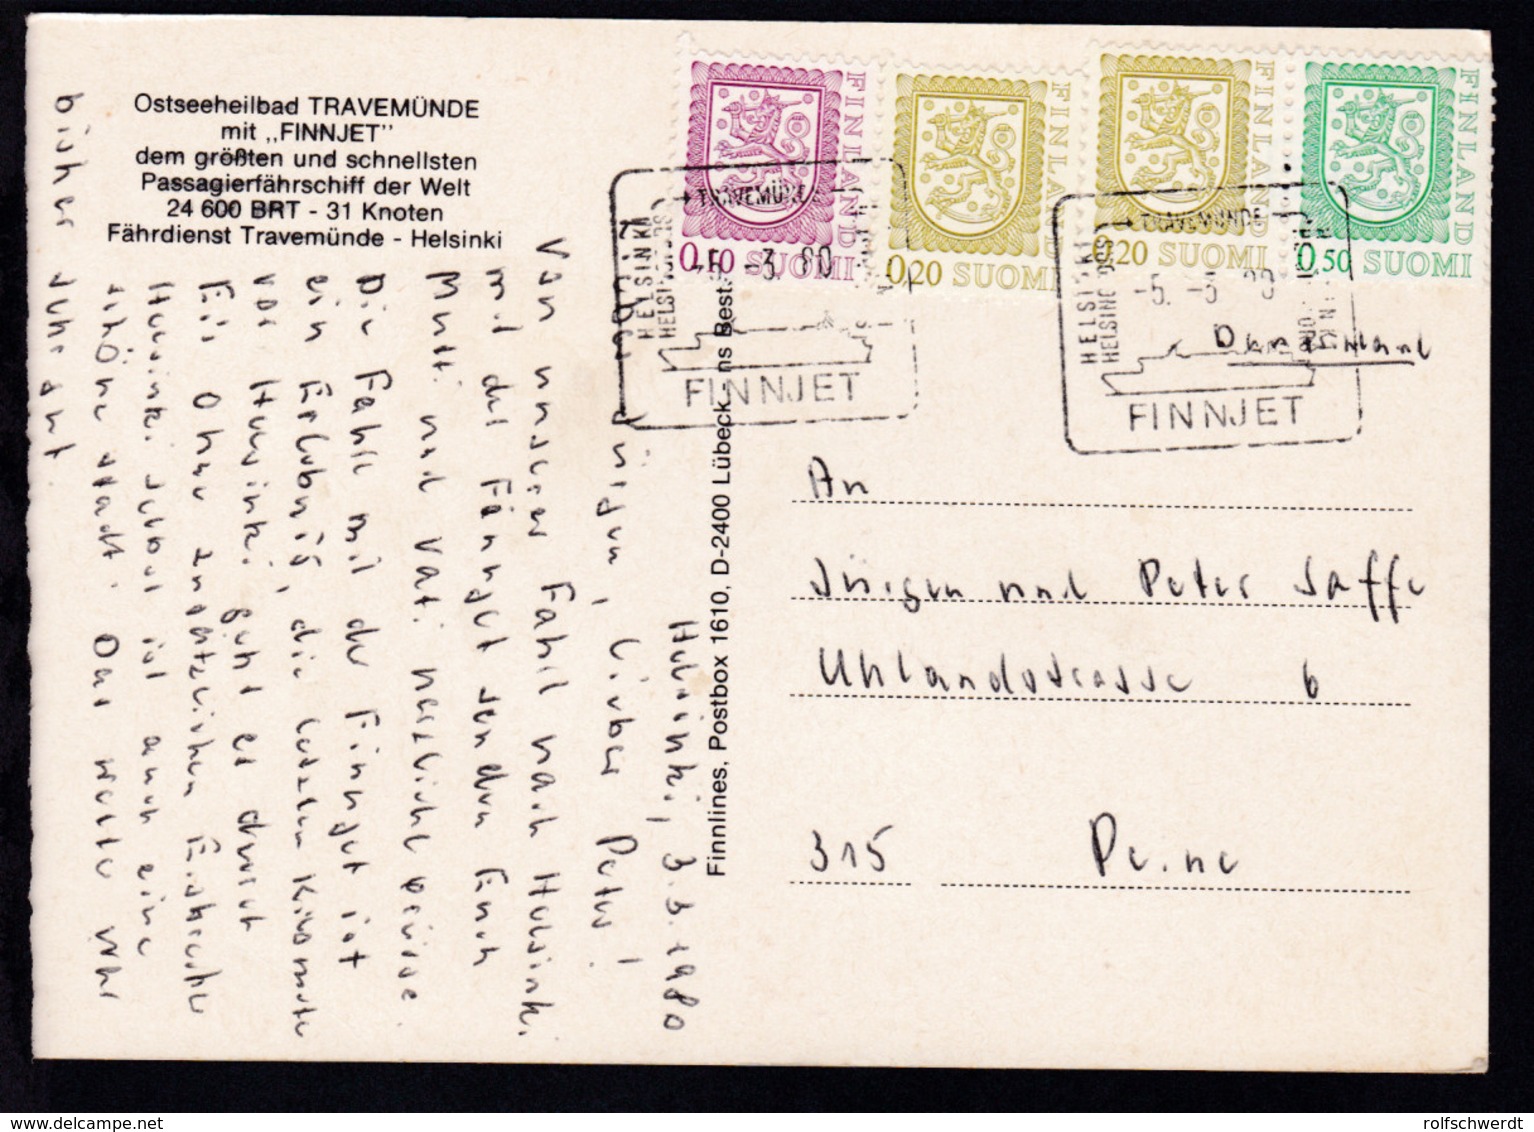 Ostseeheilbad TRAVEMÜNDE
mit „FINNJET"
dem größten und schnellsten
Passagierfährschiff der Welt
24 600 BRT - 31 Knoten
Fährdienst Travemünde - Helsinki
FINLAND
0,10 SUOMI
FINLAND
0,20 SUOMI
FINLAND
0,20 SUOMI
FINLAND
0,50 SUOMI
HELSINKI
HELSINGFORS
→ TRAVEMÜNDE
-5. -3. 80
FINNJET
HELSINKI
HELSINGFORS
→ TRAVEMÜNDE
-5. -3. 80
FINNJET
Finnlines, Postbox 1610, D-2400 Lübeck
Helsinki, 3.3.1980
lieber Peter!
Von unserer Fahrt nach Helsinki
mit der Finnjet senden Euch
Mutti und Vati herzliche Grüsse.
Die Fahrt mit der Finnjet ist
ein Erlebnis, die letzten Kilometer
vor Helsinki geht es durch
Eis ohne zusätzlichen Eisbrecher
Helsinki selbst ist auch eine
schöne Stadt. Das Wetter war
bisher sehr gut
An
Jürgen und Peter Jaffe
Uhlandstrasse 6
315 Peine
rolfschwerdt
delcampe.net